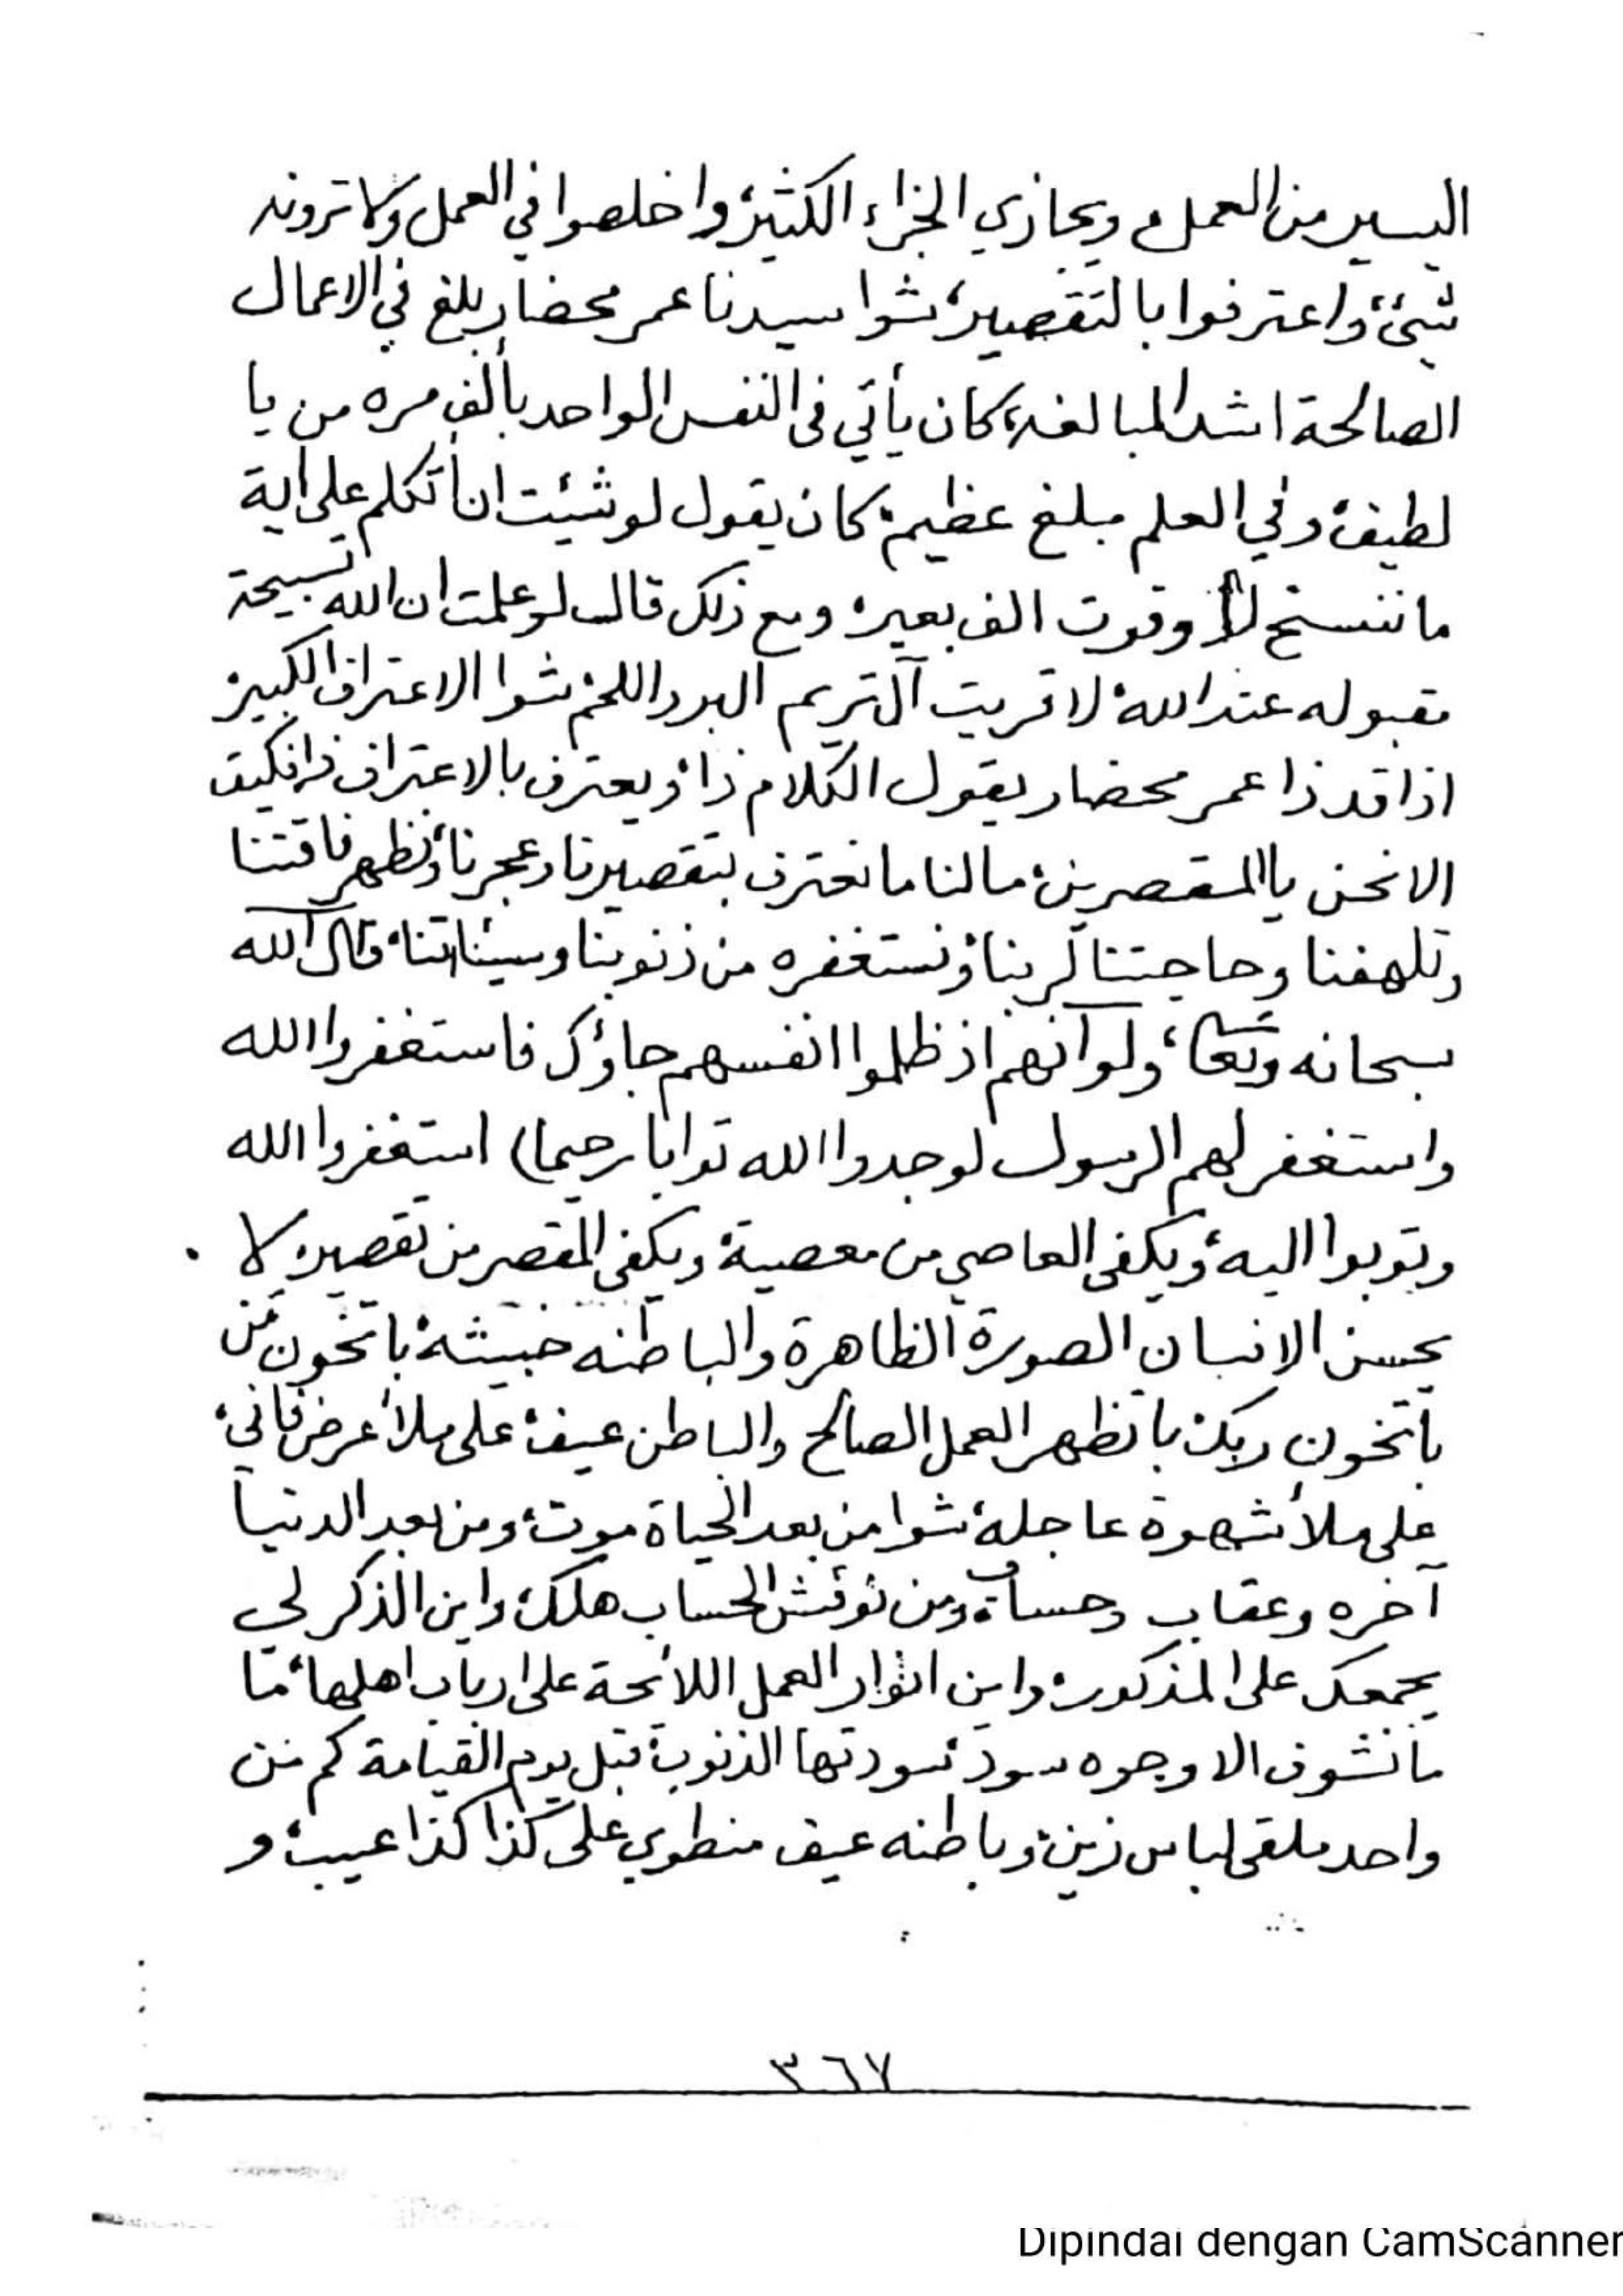 اليسير من العمل، ويجازي الجزاء الكثير، واخلصوا في العمل ولا ترونه
شيئ، واعترفوا بالتقصير، شوا سيدنا عمر محضار بلغ في الاعمال
الصالحة اشد المبالغه، كان يأتي في النفس الواحد بألف مره من يا
لطيف، وفي العلم مبلغ عظيم، كان يقول لو شئت ان أتكلم على أية
ما ننسخ لأوقرت الف بعير، ومع ذلك قال لو علمت ان الله تسبيحة
مقبوله عند الله، لا قريت آل تريم البر واللحم، شوا الاعتراف الكبير
اذا قد ذا عمر محضار يقول الكلام ذا، ويعترف بالاعتراف ذا، فكيف
الا نحن يا المقصرين، مالنا ما نعترف بتقصيرنا وعجزنا، ونظهر فاقتنا
وتلهفنا وحاجتنا لربنا، ونستغفره من ذنوبنا وسيئاتنا، قال الله
سبحانه وتعا، ولو أنهم اذ ظلموا انفسهم جاؤك فاستغفروا الله
واستغفر لهم الرسول لوجدوا الله توابا رحيما) استغفروا الله
وتوبوا اليه، ويكفى العاصي من معصية، ويكفى المقصر من تقصير، لا
يحسن الانسان الصورة الظاهرة والباطنه خبيثه، باتخون من
باتخون ربك، باتظهر العمل الصالح والباطن عيف، على ملأ عرض فاني،
على ملأ شهوة عاجله، شوا من بعد الحياة موت، ومن بعد الدنيا
آخره وعقاب وحساب، ومن نوقش الحساب هلك، واين الذكر لي
يجمعك على المذكور، واين انوار العمل اللائحة على ارباب اهلها، ما
مانشوف الا وجوه سود، سودتها الذنوب، قبل يوم القيامة كم من
واحد ملقى لباس زين، وباطنه عيف منطوي على كذا كذا عيب، و
٣٦٧
Dipindai dengan CamScanner